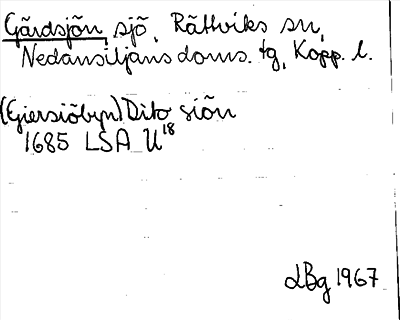 Gärdsjön, sjö, Rättviks sn,
Nedansiljans doms. tg, Kopp. l.
(Giersiöbyn) Dito siön
1685 LSA U18
LBg 1967